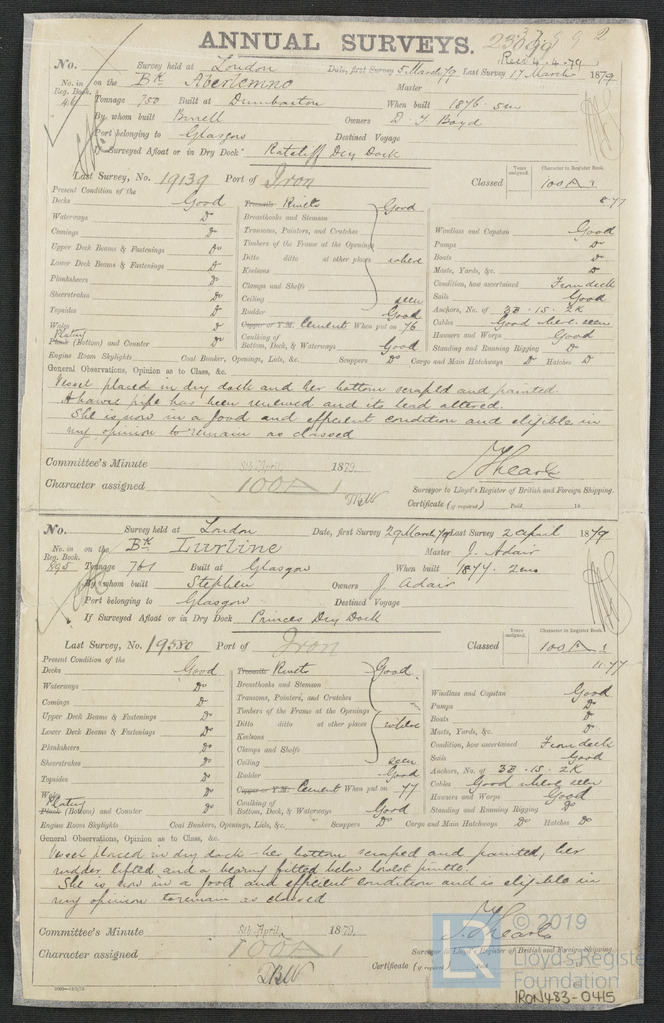 ANNUAL SURVEYS.
Recd 4.4.79
No. Survey held at London Date, first Survey 5 March/79 Last Survey 17 March 1879
No. in Reg. Book. on the Bk Aberlemno Master
46 Tonnage 750 Built at Dumbarton When built 1876.
By whom built Birrell Owners D. J. Boyd
Port belonging to Glasgow Destined Voyage
If Surveyed Afloat or in Dry Dock Ratcliff Dry Dock
Last Survey, No. 19139 Port of Iron Classed
Years assigned. Character in Register Book.
100A1
8.77
Present Condition of the
Decks Good
Waterways Do
Comings Do
Upper Deck Beams & Fastenings Do
Lower Deck Beams & Fastenings Do
Planksheers Do
Sheerstrakes Do
Topsides Do
Wales Do
Plating
Plank (Bottom) and Counter Do
Engine Room Skylights
Treenails Rivets Good
Breasthooks and Stemson
Transoms, Pointers, and Crutches
Timbers of the Frame at the Openings
Ditto ditto at other places where
Keelsons
Clamps and Shelfs
Ceiling seen
Rudder Good
Copper or Y.M. Cement When put on 76
Caulking of Bottom, Deck, & Waterways Good
Coal Bunkers, Openings, Lids, &c. Scuppers Do
Windlass and Capstan Good
Pumps Do
Boats Do
Masts, Yards, &c. Do
Condition, how ascertained From deck
Sails Good
Anchors, No. of 3B. 1S. 2K
Cables Good where seen
Hawsers and Warps Good
Standing and Running Rigging Do
Cargo and Main Hatchways Do Hatches Do
General Observations, Opinion as to Class, &c.
Vessel placed in dry dock and her bottom scraped and painted.
A hawse pipe has been renewed and its lead altered.
She is now in a good and efficient condition and eligible in
my opinion to remain as classed
Committee's Minute 8th April 1879.
Character assigned 100A1
Surveyor to Lloyd's Register of British and Foreign Shipping.
Certificate (if required) Paid 18
No. Survey held at London Date, first Survey 29 March/79 Last Survey 2 April 1879
No. in Reg. Book. on the Bk Lurline Master J. Adair
895 Tonnage 761 Built at Glasgow When built 1877.
By whom built Stephen Owners J. Adair
Port belonging to Glasgow Destined Voyage
If Surveyed Afloat or in Dry Dock Princes Dry Dock
Last Survey, No. 19580 Port of Iron Classed
Years assigned. Character in Register Book.
100A1
11.77
Present Condition of the
Decks Good
Waterways Do
Comings Do
Upper Deck Beams & Fastenings Do
Lower Deck Beams & Fastenings Do
Planksheers Do
Sheerstrakes Do
Topsides Do
Wales Do
Plating
Plank (Bottom) and Counter Do
Engine Room Skylights
Treenails Rivets Good
Breasthooks and Stemson
Transoms, Pointers, and Crutches
Timbers of the Frame at the Openings
Ditto ditto at other places where
Keelsons
Clamps and Shelfs
Ceiling seen
Rudder Good
Copper or Y.M. Cement When put on 77
Caulking of Bottom, Deck, & Waterways Good
Coal Bunkers, Openings, Lids, &c. Scuppers Do
Windlass and Capstan Good
Pumps Do
Boats Do
Masts, Yards, &c. Do
Condition, how ascertained From deck
Sails Good
Anchors, No. of 3B. 1S. 2K
Cables Good where seen
Hawsers and Warps Good
Standing and Running Rigging Do
Cargo and Main Hatchways Do Hatches Do
General Observations, Opinion as to Class, &c.
Vessel placed in dry dock - her bottom scraped and painted, her
rudder lifted and a bearing fitted below lowest pintle.
She is now in a good and efficient condition and is eligible in
my opinion to remain as classed
Committee's Minute 8th April 1879.
Character assigned 100A1
Surveyor to Lloyd's Register of British and Foreign Shipping.
Certificate (if required) Paid 18
© 2019
Lloyd's Register
Foundation
IRON483-0415